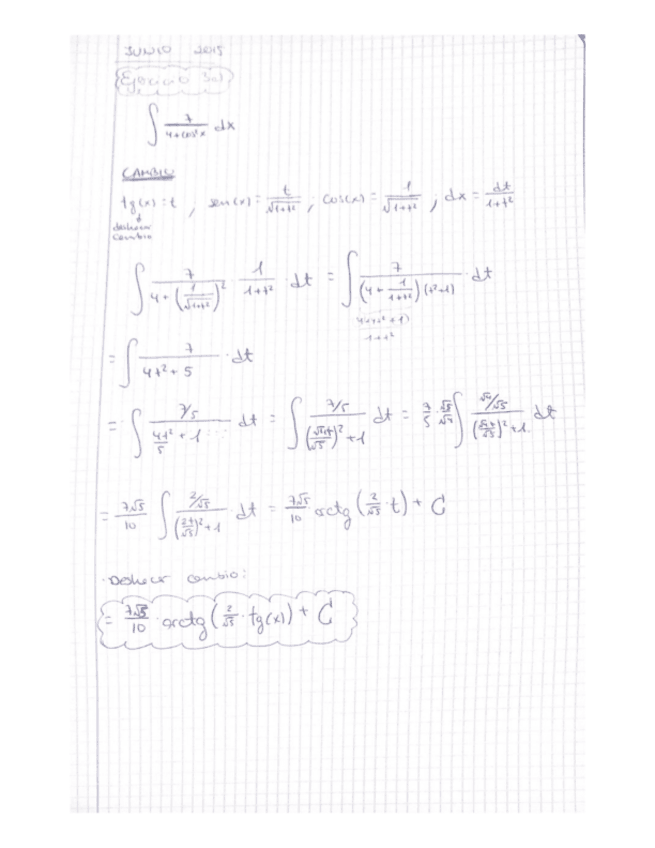 JUNIO 2015
Ejercicio 3a)
∫ 7/(4+cos²x) dx
CAMBIO
tg(x)=t , sen(x)= t/√(1+t²) ; cos(x)= 1/√(1+t²) ; dx = dt/(1+t²)
deshacer
cambio
∫ 7/(4+(1/√(1+t²))²) · 1/(1+t²) · dt = ∫ 7/((4+1/(1+t²))(t²+1)) · dt
= ∫ 7/(4t²+5) · dt
= ∫ (7/5)/(4t²/5 + 1) · dt = ∫ (7/5)/((√4t/√5)²+1) dt = 7/5 · √5/√4 ∫ (√4/√5)/((√4t/√5)²+1) dt
= 7√5/10 ∫ (2/√5)/((2t/√5)²+1) dt = 7√5/10 arctg(2/√5 t) + C
· Deshacer cambio:
= 7√5/10 · arctg(2/√5 · tg(x)) + C